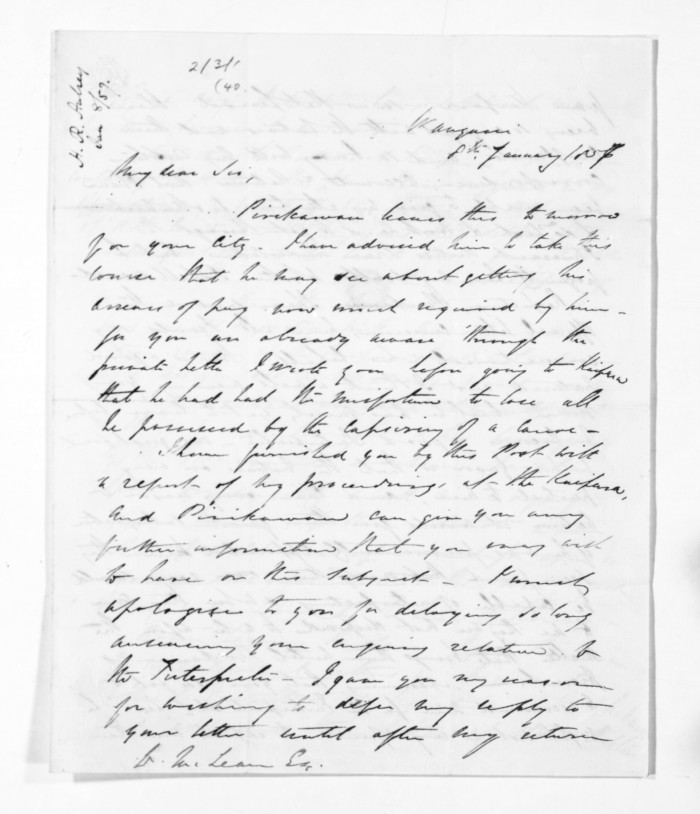 H. R. Aubrey
Jan 8/59.
2/3/1
(40.
Wangarei
8th January 185
My dear Sir,
Pirikawau leaves this to morrow
for your City. I have advised him to take this
course that he may see about getting his
arrears of pay now much required by him –
for you are already aware through the
private letter I wrote you before going to Kaipara
that he had had the misfortune to lose all
he possessed by the capsizing of a canoe –
I have furnished you by this Post with
a report of my proceedings at the Kaipara,
and Pirikawau can give you any
further information that you may wish
to have on this subject –
apologise to you for delaying so long
answering your enquiry relative to
the Interpreter – I gave you my reason
for wishing to defer my reply to
your letter until after my return
D. McLean Esq.